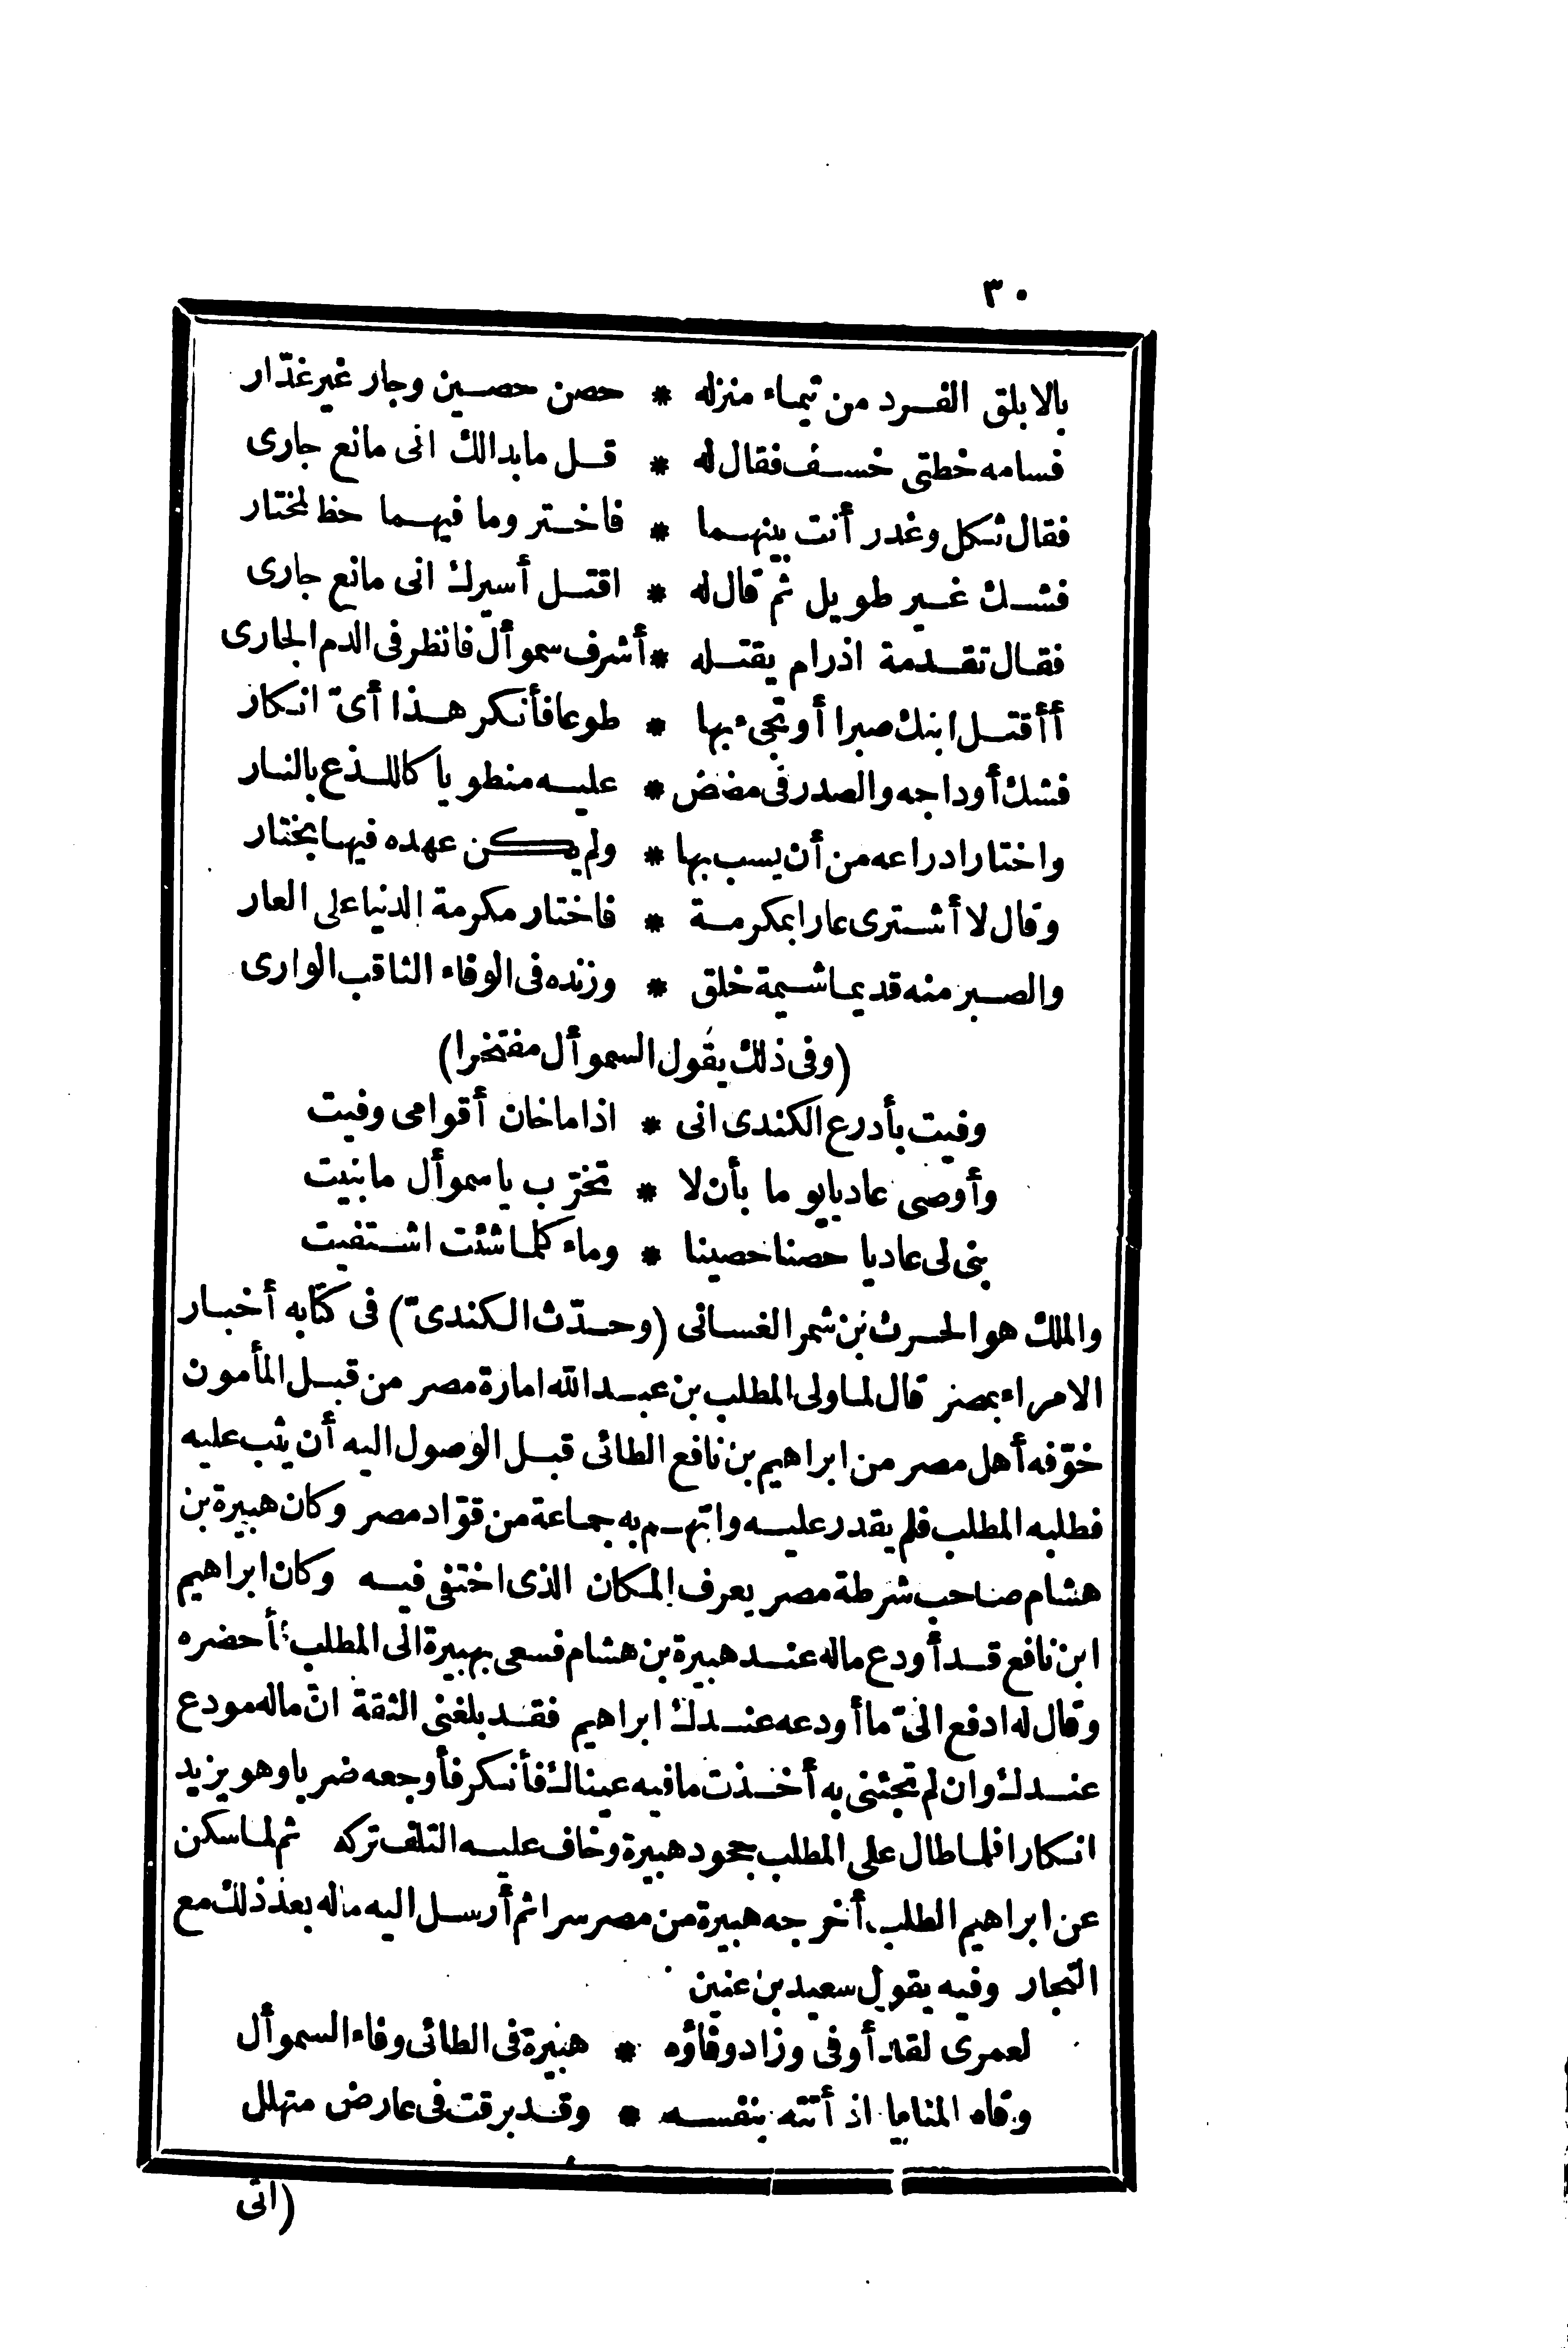 ٣٠
بالابلق الفرد من تيماء منزله * حصن حصين وجار غير غدّار
فسامه خطتى خسف فقال له * قل مابدالك انى مانع جارى
فقال ثكل وغدر أنت بينهما * فاختر وما فيهما حظ لمختار
فشك غير طويل ثم قال له * اقتل أسيرك انى مانع جارى
فقال تقدمة اذرام يقتله * أشرف سموأل فانظر فى الدم الجارى
أأقتل ابنك صبرا أوتجىء بها * طوعا فأنكر هذا أىّ انكار
فشك أوداجه والصدر فى مضض * عليه منطويا كاللذع بالنار
واختار ادراعه من أن يسب بها * ولم يكن عهده فيها بختار
وقال لا أشترى عارا بمكرمة * فاختار مكرمة الدنيا على العار
والصبر منه قديما شيمة خلق * وزنده فى الوفاء الثاقب الوارى
(وفى ذلك يقول السموأل مفتخرا)
وفيت بأدرع الكندى انى * اذا ماخان أقوامى وفيت
وأوصى عاديا يوما بأن لا * تخرّب ياسموأل مابنيت
بنى لى عاديا حصنا حصينا * وماء كلما شئت اشتفيت
والملك هو الحرث بن شمر الغسانى (وحدّث الكندىّ) فى كتابه أخبار
الامراء بمصر قال لما ولى المطلب بن عبد الله امارة مصر من قبل المأمون
خوّفه أهل مصر من ابراهيم بن نافع الطائى قبل الوصول اليه أن يثب عليه
فطلبه المطلب فلم يقدر عليه واتهم به جماعة من قوّاد مصر وكان هبيرة بن
هشام صاحب شرطة مصر يعرف المكان الذى اختفى فيه وكان ابراهيم
ابن نافع قد أودع ماله عند هبيرة بن هشام فسعى بهبيرة الى المطلب فأحضره
وقال له ادفع الىّ ما أودعه عندك ابراهيم فقد بلغنى الثقة انّ ماله مودع
عندك وان لم تجئنى به أخذت مافيه عيناك فأنكر فأوجعه ضربا وهو يزيد
انكارا فلما طال على المطلب جحود هبيرة وخاف عليه التلف تركه ثم لما سكن
عن ابراهيم الطلب أخرجه هبيرة من مصر سرا ثم أرسل اليه ماله بعد ذلك مع
التجار وفيه يقول سعيد بن عنين
لعمرى لقد أوفى وزاد وفاؤه * هبيرة فى الطائى وفاء السموأل
وقاه المنايا اذ أتته بنفسه * وقد برقت فى عارض متهلل
(اتى